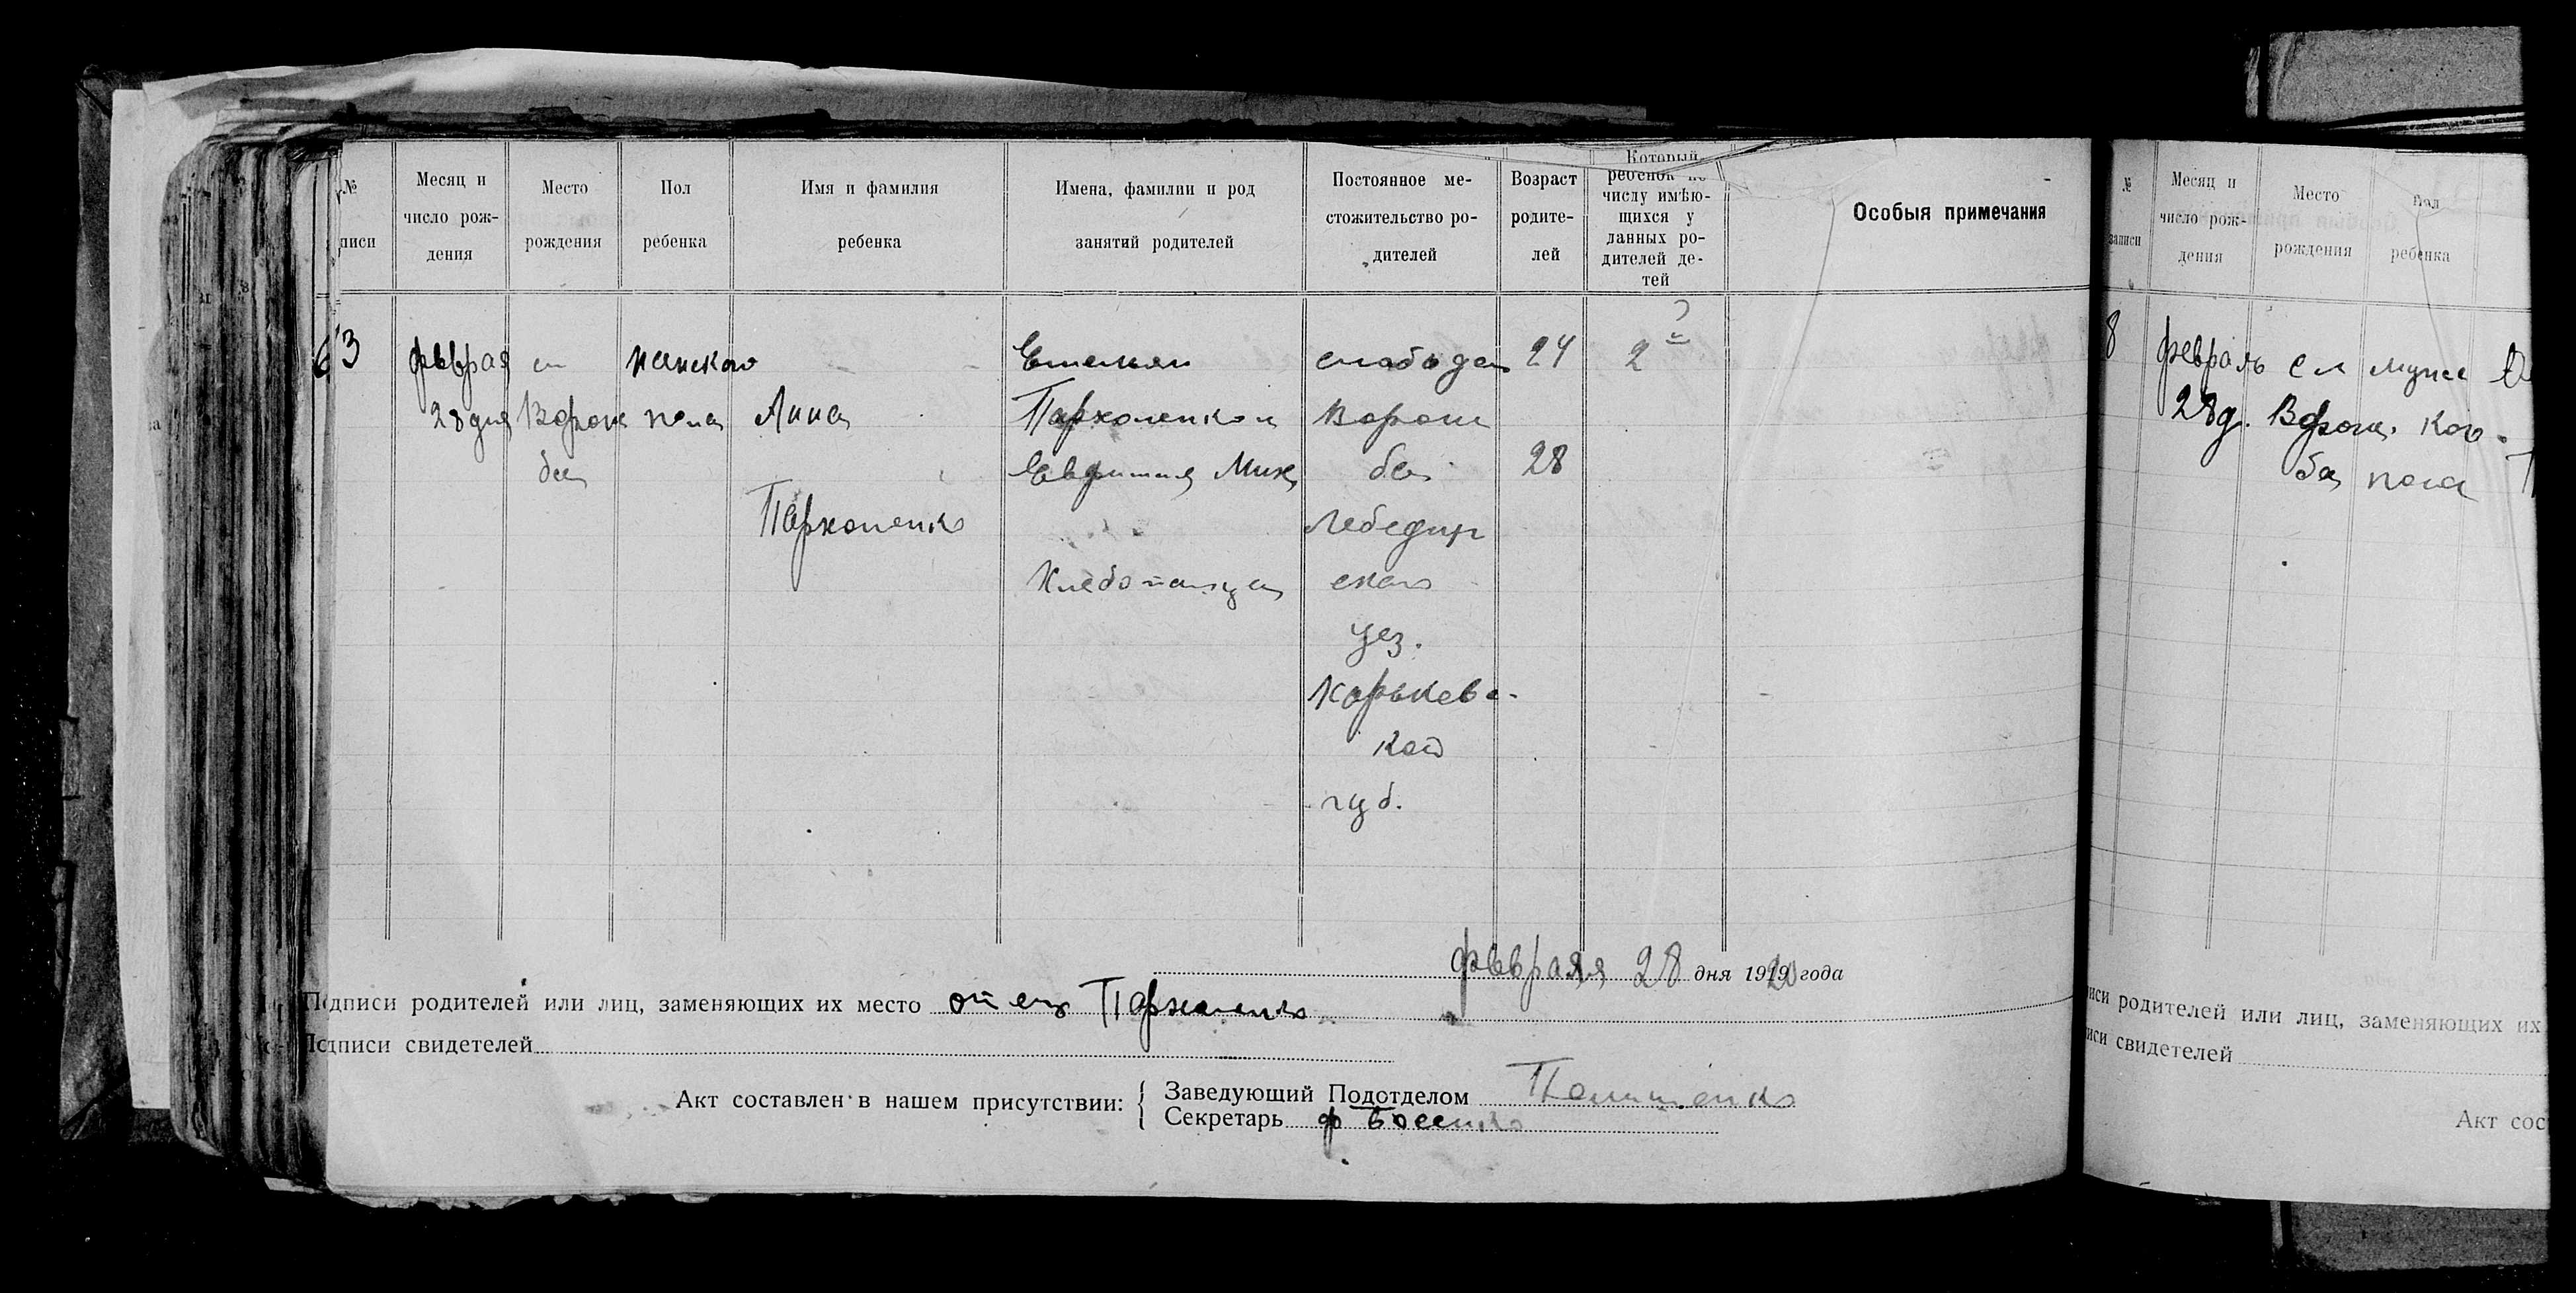 №
писи
Месяц и
число рож-
дения
Место
рождения
Пол
ребенка
Имя и фамилия
ребенка
Имена, фамилии и род
занятий родителей
Постоянное ме-
стожительство ро-
дителей
Возраст
родите-
лей
Который
ребенок по
числу имѣю-
щихся у
данных ро-
дителей де-
тей
Особыя примечания
63
феврая
28 дня
сл
Ворож
ба
женского
пола
Анна
Пархоменко
Емельян
Пархоменко и
Евфимия Мих
Хлебопашцы
слобода
Ворож
ба
Лебедин
ского
уез.
Харьковс-
кой
губ.
24
28
2
февраля 28 дня 1920 года
Подписи родителей или лиц, заменяющих их место отец Пархоменко
Подписи свидетелей
Акт составлен в нашем присутствии:
Заведующий Подотделом
Секретарь ф
№
записи
Месяц и
число рож-
дения
Место
рождения
Пол
ребенка
8
февраль
28 д.
сл
Ворож.
ба
мужс
ког.
пола
иси родителей или лиц, заменяющих их
иси свидетелей
Акт сос